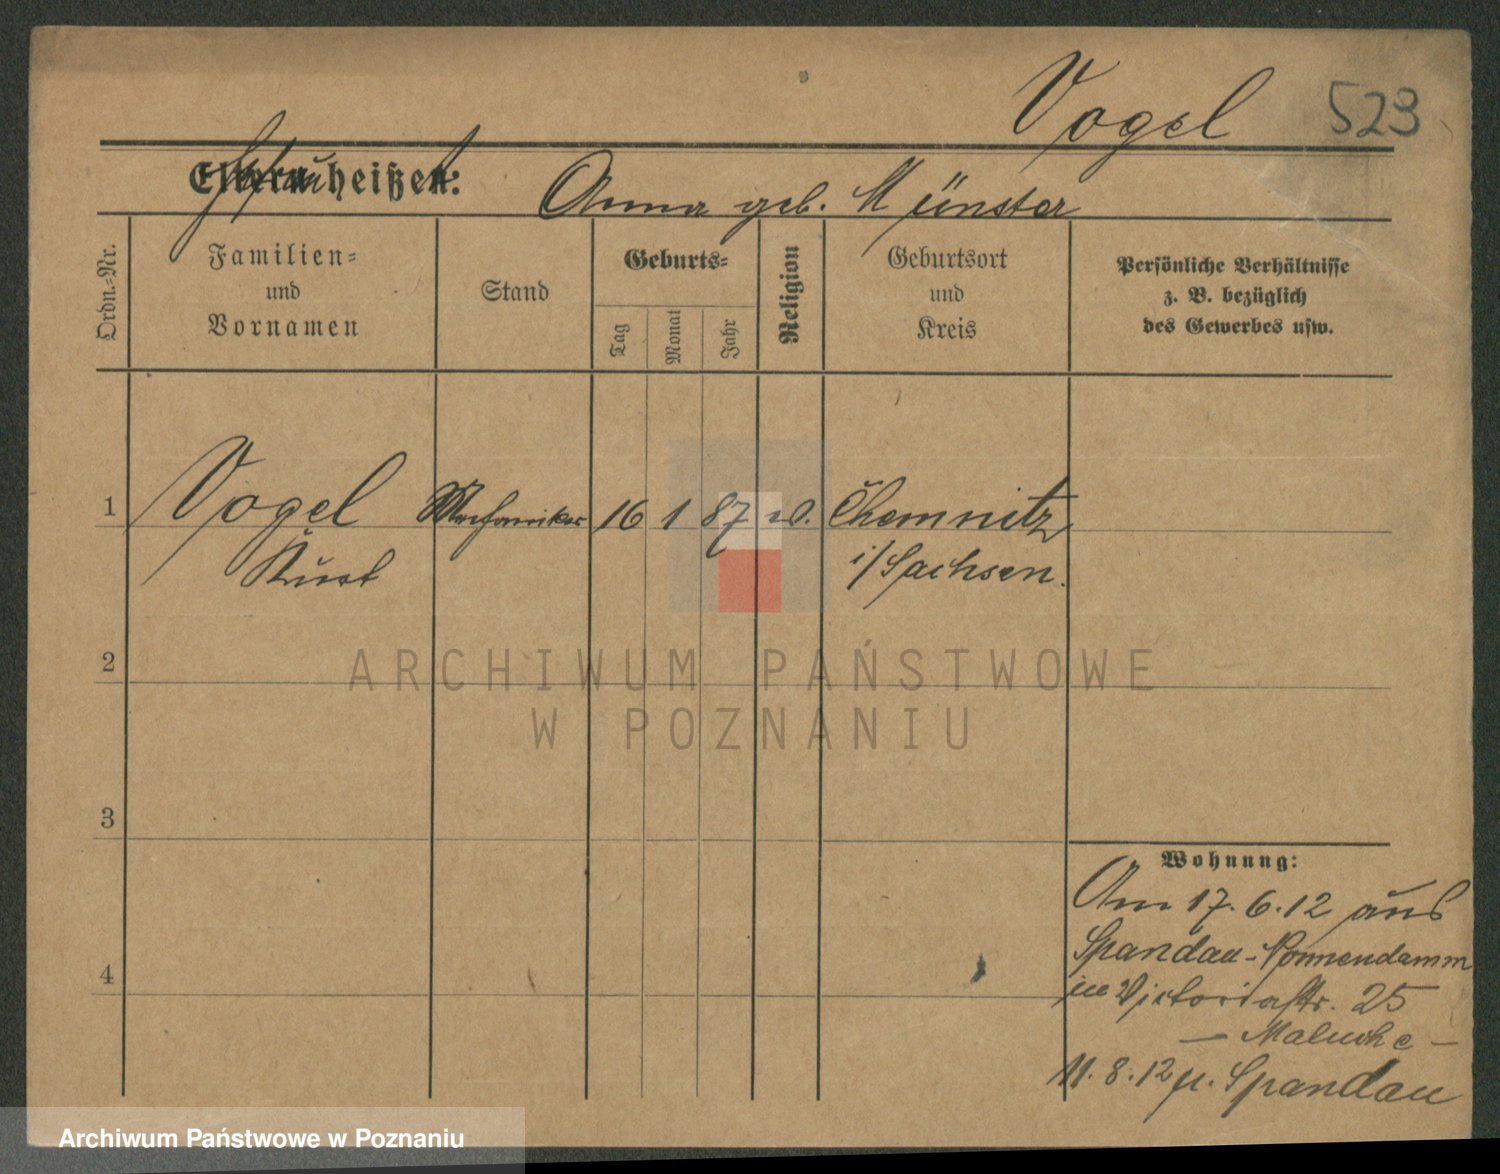 Vogel 523
Eltern heißen: Anna geb. Münster
Ordn.-Nr.
Familien-
und
Vornamen
Stand
Geburts-
Tag
Monat
Jahr
Religion
Geburtsort
und
Kreis
Persönliche Verhältnisse
z. B. bezüglich
des Gewerbes usw.
1 Vogel Mechaniker 16 1 87 Chemnitz
Kurt i/Sachsen.
2
3
4
Wohnung:
Am 17.6.12 aus
Spandau-Nonnendamm
in Victoriastr. 25
— Maluche —
11.8.12 n. Spandau
ARCHIWUM PAŃSTWOWE
W POZNANIU
Archiwum Państwowe w Poznaniu